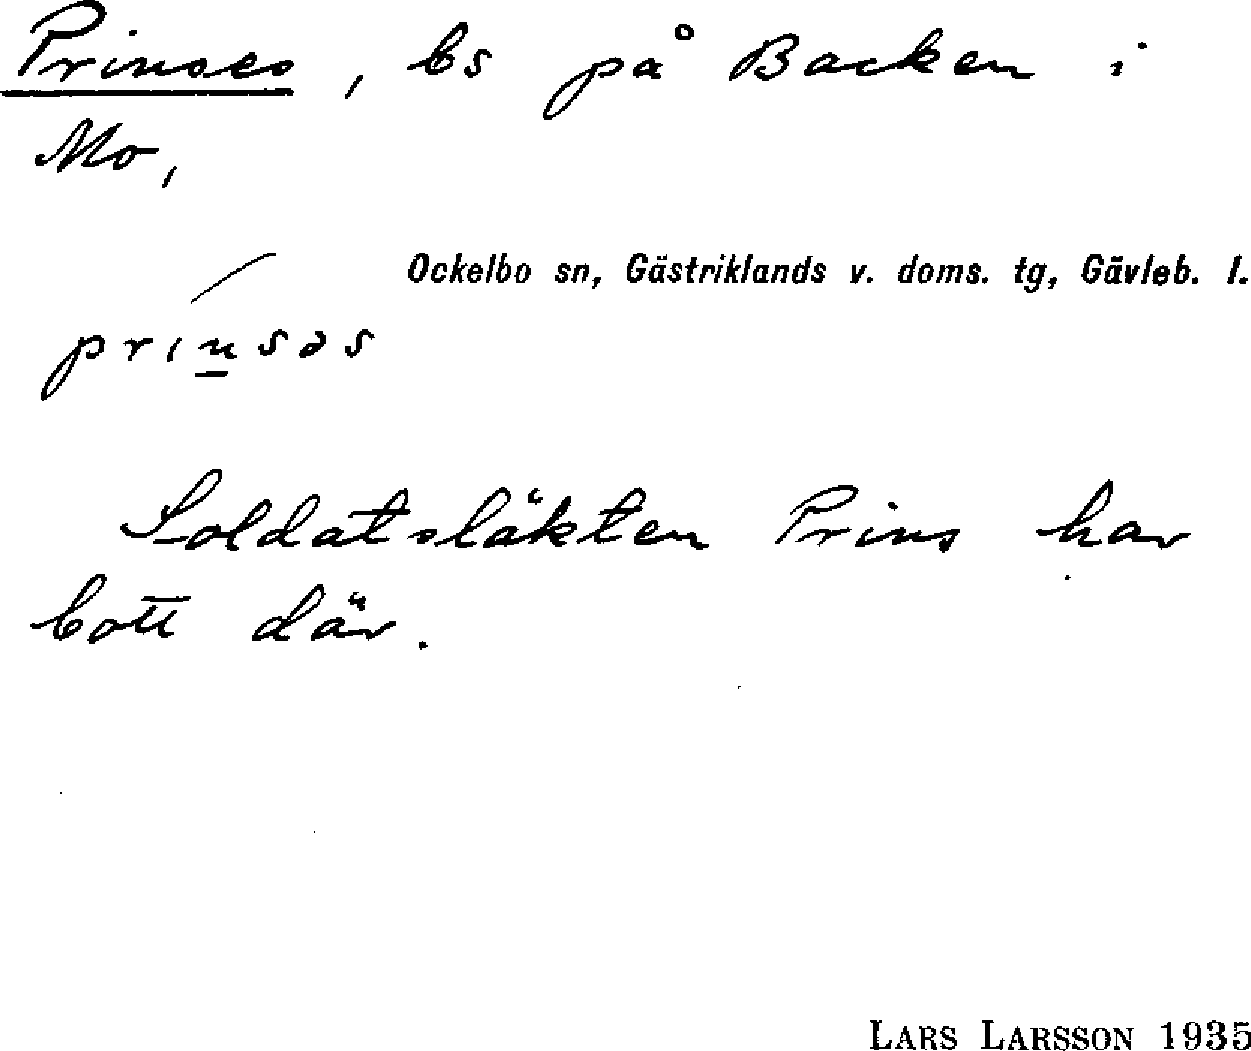 Prinses, bs på Backen i
Mo,
Ockelbo sn, Gästriklands v. doms. tg, Gävleb. l.
prinsəs
Soldatsläkten Prins har
bott där.
LARS LARSSON 1935